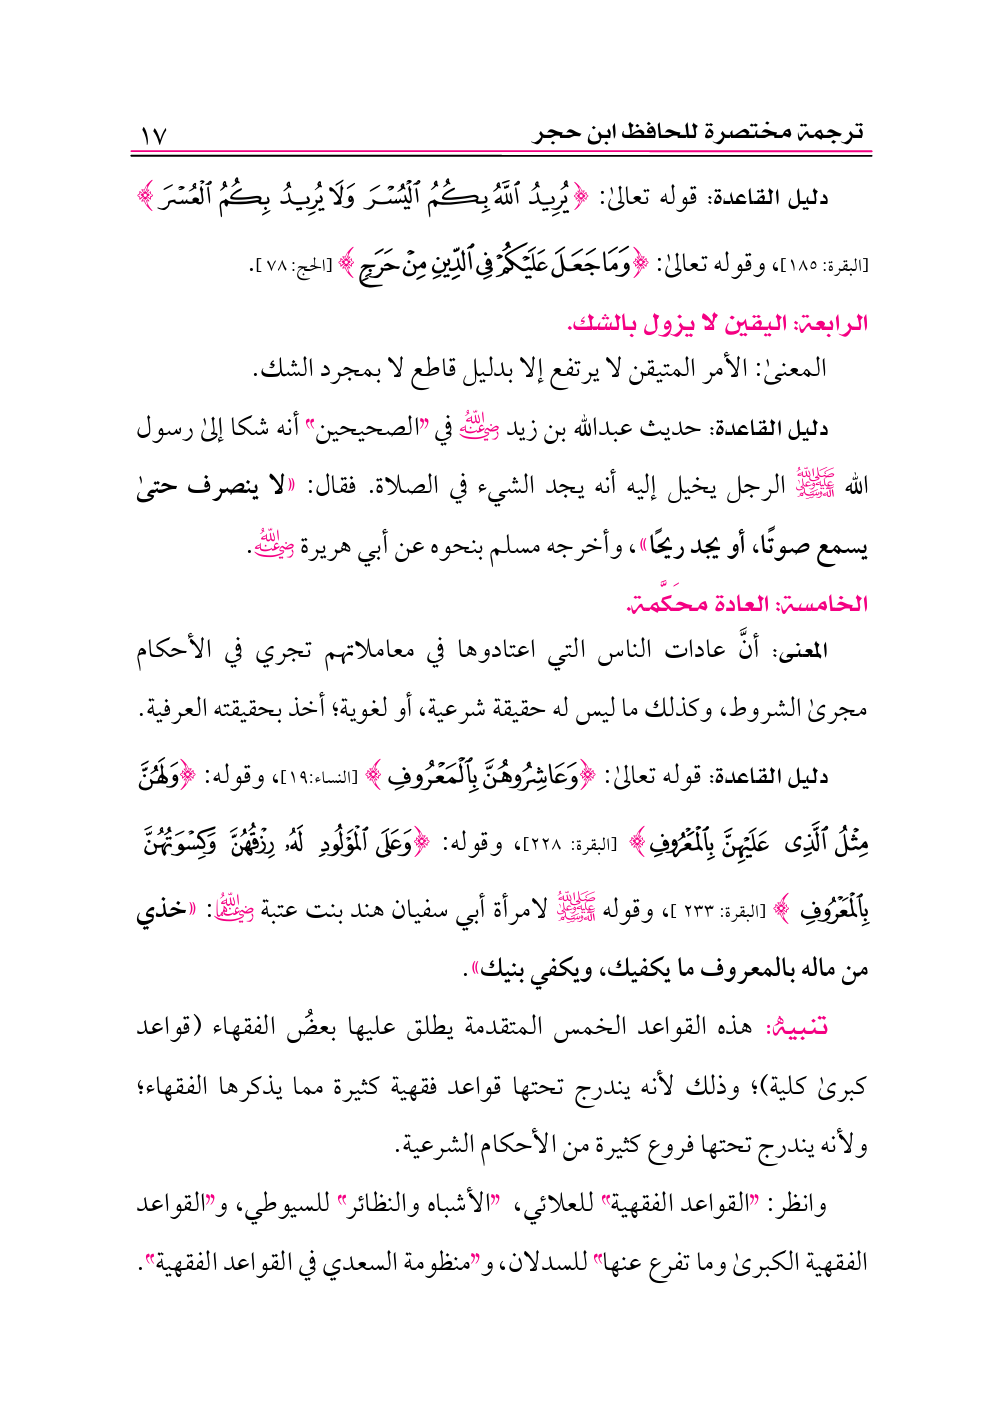 ترجمة مختصرة للحافظ ابن حجر ١٧
دليل القاعدة: قوله تعالىٰ: ﴿يُرِيدُ ٱللَّهُ بِكُمُ ٱلْيُسْرَ وَلَا يُرِيدُ بِكُمُ ٱلْعُسْرَ﴾
[البقرة: ١٨٥]، وقوله تعالىٰ: ﴿وَمَا جَعَلَ عَلَيْكُمْ فِي ٱلدِّينِ مِنْ حَرَجٍ﴾ [الحج: ٧٨].
الرابعة: اليقين لا يزول بالشك.
المعنىٰ: الأمر المتيقن لا يرتفع إلا بدليل قاطع لا بمجرد الشك.
دليل القاعدة: حديث عبدالله بن زيد رضي الله عنه في "الصحيحين" أنه شكا إلىٰ رسول
الله ﷺ الرجل يخيل إليه أنه يجد الشيء في الصلاة. فقال: «لا ينصرف حتىٰ
يسمع صوتًا، أو يجد ريحًا»، وأخرجه مسلم بنحوه عن أبي هريرة رضي الله عنه.
الخامسة: العادة محَكَّمة.
المعنى: أنَّ عادات الناس التي اعتادوها في معاملاتهم تجري في الأحكام
مجرىٰ الشروط، وكذلك ما ليس له حقيقة شرعية، أو لغوية؛ أخذ بحقيقته العرفية.
دليل القاعدة: قوله تعالىٰ: ﴿وَعَاشِرُوهُنَّ بِٱلْمَعْرُوفِ﴾ [النساء:١٩]، وقوله: ﴿وَلَهُنَّ
مِثْلُ ٱلَّذِى عَلَيْهِنَّ بِٱلْمَعْرُوفِ﴾ [البقرة: ٢٢٨]، وقوله: ﴿وَعَلَى ٱلْمَوْلُودِ لَهُۥ رِزْقُهُنَّ وَكِسْوَتُهُنَّ
بِٱلْمَعْرُوفِ﴾ [البقرة: ٢٣٣]، وقوله ﷺ لامرأة أبي سفيان هند بنت عتبة رضي الله عنها: «خذي
من ماله بالمعروف ما يكفيك، ويكفي بنيك».
تنبيهٌ: هذه القواعد الخمس المتقدمة يطلق عليها بعضُ الفقهاء (قواعد
كبرىٰ كلية)؛ وذلك لأنه يندرج تحتها قواعد فقهية كثيرة مما يذكرها الفقهاء؛
ولأنه يندرج تحتها فروع كثيرة من الأحكام الشرعية.
وانظر: "القواعد الفقهية" للعلائي، "الأشباه والنظائر" للسيوطي، و"القواعد
الفقهية الكبرىٰ وما تفرع عنها" للسدلان، و"منظومة السعدي في القواعد الفقهية".